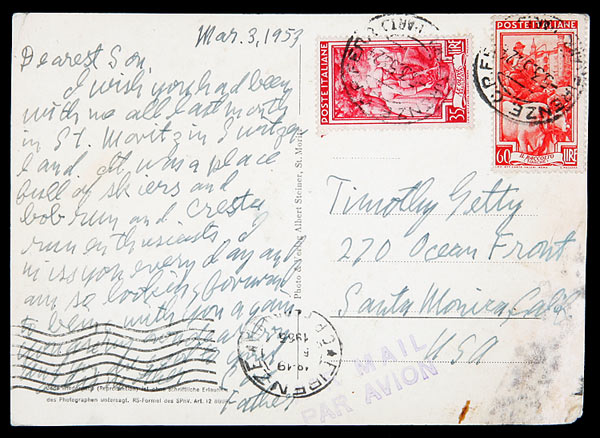 Mar. 3, 1953
Dearest Son,
I wish you had been
with us all last month
in St. Moritz in Switzer
land. It was a place
full of skiers and
bob run and Cresta
run enthusiasts. I
miss you every day and
am so looking forward
to being with you again
Father
POSTE ITALIANE
35 LIRE
POSTE ITALIANE
60 LIRE
IL RACCOLTO
FIRENZE
FIRENZE
Timothy Getty
270 Ocean Front
Santa Monica, Calif
USA
MAIL
PAR AVION
Photo & Verlag Albert Steiner, St. Moritz
ist ohne schriftliche Erlaubnis
des Photographen untersagt. RS-Formel des SPhV. Art. 12